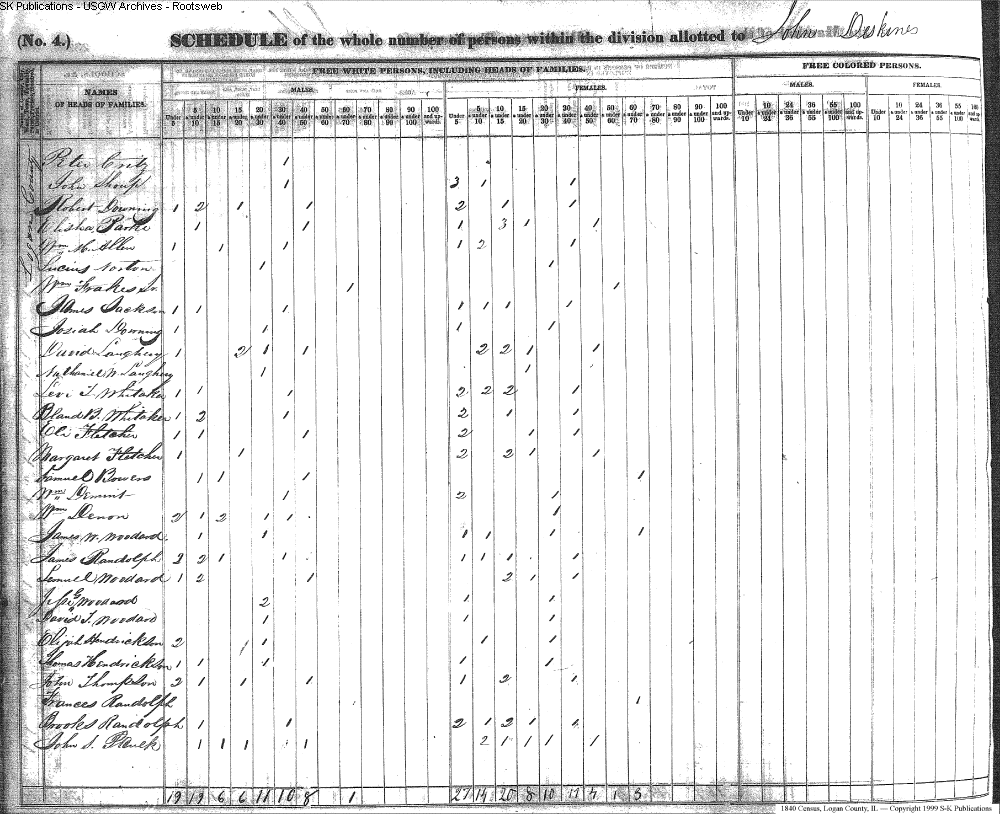 SK Publications - USGW Archives - Rootsweb
(No. 4.) SCHEDULE of the whole number of persons within the division allotted to John Deskines
FREE WHITE PERSONS, INCLUDING HEADS OF FAMILIES. FREE COLORED PERSONS.
NAMES OF HEADS OF FAMILIES. MALES. FEMALES. MALES. FEMALES.
Under 5 5 & under 10 10 & under 15 15 & under 20 20 & under 30 30 & under 40 40 & under 50 50 & under 60 60 & under 70 70 & under 80 80 & under 90 90 & under 100 100 and upwards. Under 5 5 & under 10 10 & under 15 15 & under 20 20 & under 30 30 & under 40 40 & under 50 50 & under 60 60 & under 70 70 & under 80 80 & under 90 90 & under 100 100 and upwards. Under 10 10 & under 24 24 & under 36 36 & under 55 55 & under 100 100 and upwards. Under 10 10 & under 24 24 & under 36 36 & under 55 55 & under 100 100 and upwards.
Peter Critz 1
John Shoup 1 3 1 1
Robert Downing 1 2 1 1 2 1 1
Elisha Parke 1 1 1 3 1 1
Wm M. Allen 1 1 1 1 2 1
Lucius Norton 1 1
Wm Frakes Sr. 1 1
James Jackson 1 1 1 1 1 1
Josiah Downing 1 1 1 1
David Laughery 1 2 1 1 2 2 1 1
Nathaniel W. Laughery 1 1
Levi T. Whitaker 1 1 1 2 2 2 1
Bland B. Whitaker 1 2 1 2 1 1
Eli Fletcher 1 1 1 2 1 1
Margaret Fletcher 1 1 2 2 1 1
Samuel Bowers 1 1 1 1
Wm Demint 1 2 1
Wm Denon 2 1 2 1 1 1
James W. Woodard 1 1 1 1 1 1
James Randolph 2 2 1 1 1 1 1 1
Lemuel Woodard 1 2 1 2 1 1
Woodard 2 1 1
David T. Woodard 1 1 1
Elijah Hendrickson 2 1 1 1 1
Thomas Hendrickson 1 1 1 1 1
John Thompson 2 1 1 1 1 2 1
Frances Randolph 1
Brooks Randolph 1 1 2 1 2 1 1
John S. Pauk 1 1 1 1 2 1 1 1 1
19 19 6 6 11 10 8 1 27 14 20 8 10 11 4 1 3
1840 Census, Logan County, IL — Copyright 1999 S-K Publications